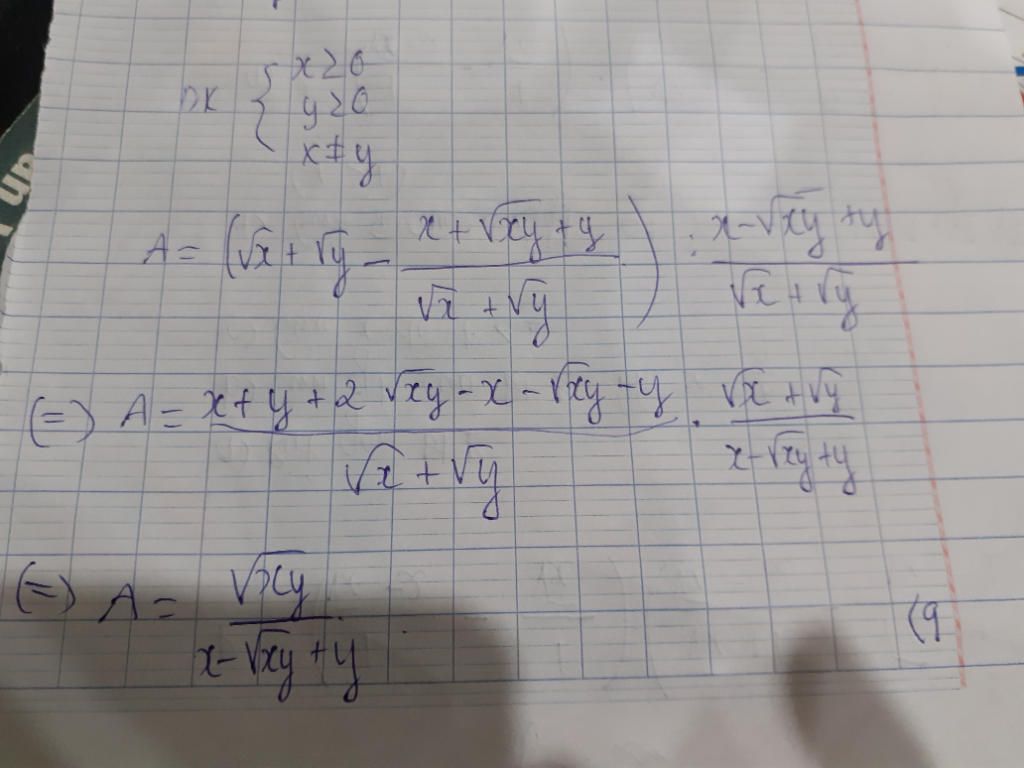 ĐK { x ≥ 0
y ≥ 0
x ≠ y
A = (√x + √y - (x + √xy + y)/(√x + √y)) : (x - √xy + y)/(√x + √y)
(=) A = (x + y + 2√xy - x - √xy - y)/(√x + √y) . (√x + √y)/(x - √xy + y)
(=) A = √xy/(x - √xy + y)